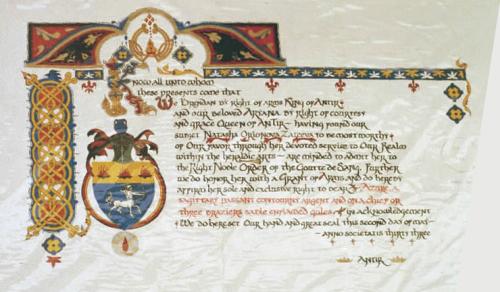 Know all unto whom
these presents come that
We Brendan by right of arms King of Antir
and our beloved Aryana by right of courtesy
and grace Queen of Antir having found our
subject Natasha Orionova Zateeva to be most worthy
of Our favor through her devoted service to Our Realm
within the heraldic arts are minded to admit her to
the Right Noble Order of the Goutte de Sang. Further,
We do honor her with a Grant of Arms and do hereby
affirm her sole and exclusive right to bear Azure a
sagittary passant contourny argent and on a chief or
three braziers sable enflamed gules in acknowledgement
We do here set Our hand and great seal this second day of may
anno societatis thirty three
Antir